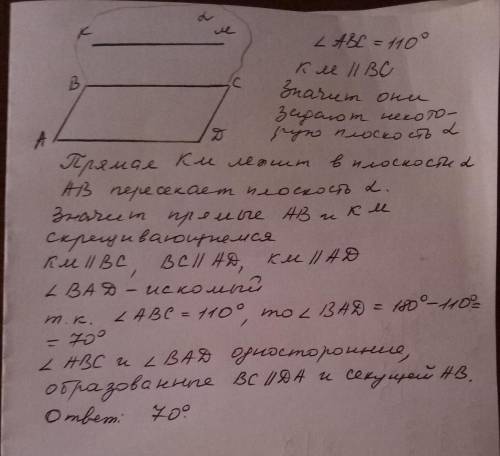 K α M
B C
A D
∠ABC = 110°
KM || BC
Значит они
задают некото-
рую плоскость α
Прямая KM лежит в плоскости α
AB пересекает плоскость α.
Значит прямые AB и KM
скрещивающиемся
KM || BC, BC || AD, KM || AD
∠BAD – искомый
т.к. ∠ABC = 110°, то ∠BAD = 180° – 110° =
= 70°
∠ABC и ∠BAD односторонние,
образованные BC || DA и секущей AB.
Ответ: 70°.